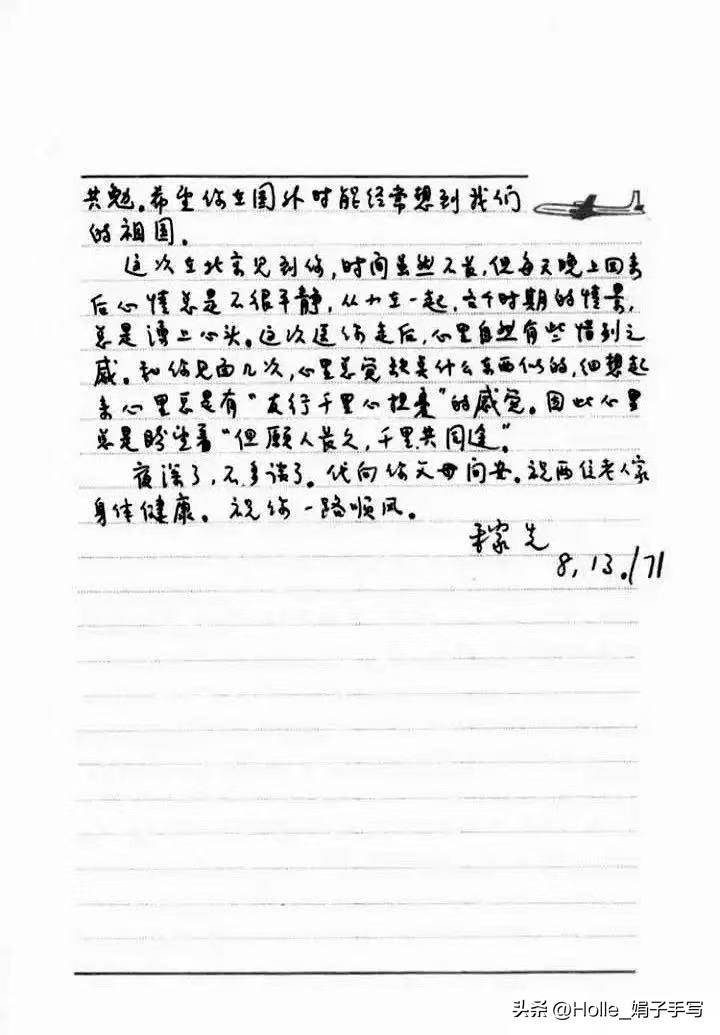 共勉。希望你在国外时能经常想到我们
的祖国。
这次在北京见到你,时间虽然不长,但每天晚上回来
后心情总是不很平静,从小在一起,各个时期的情景,
总是涌上心头。这次送你走后,心里自然有些惜别之
感。和你见面几次,心里总觉缺是什么东西似的,细想起
来心里总是有“友行千里心担忧”的感觉。因此心里
总是盼望着“但愿人长久,千里共同途”。
夜深了,不多谈了。代向你父母问安。祝两位老人家
身体健康。祝你一路顺风。
稼先
8,13./71
头条 @Holle_娟子手写